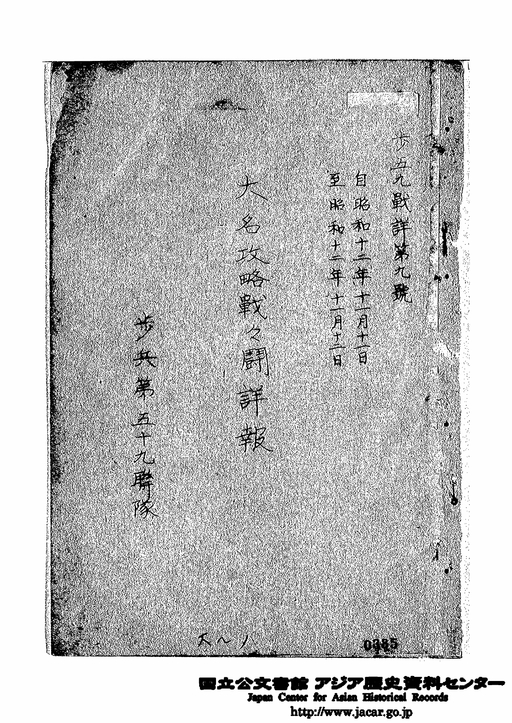 歩五九戰詳第九號
自昭和十二年十一月十一日
至昭和十二年十一月十二日
大名攻略戰々鬪詳報
歩兵第五十九聯隊
0385
国立公文書館 アジア歴史資料センター
Japan Center for Asian Historical Records
http://www.jacar.go.jp